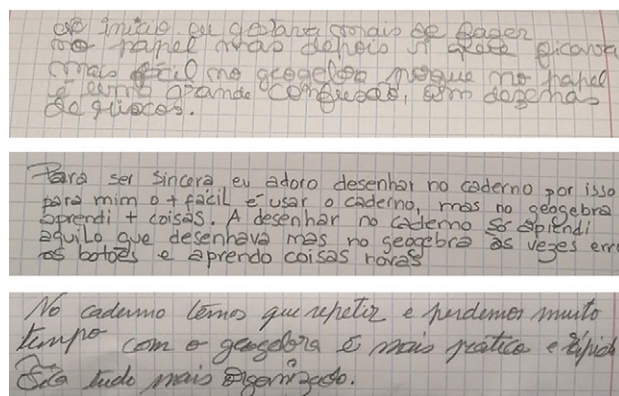 no início eu gostava mais de fazer
no papel mas depois vi que ficava
mais fácil no geogebra porque no papel
é uma grande confusão, com dezenas
de
Para ser sincera eu adoro desenhar no caderno por isso
para mim o + fácil é usar o caderno, mas no geogebra
aprendi + coisas. A desenhar no caderno só aprendi
aquilo que desenhava mas no geogebra às vezes erro
os botões e aprendo coisas novas
No caderno temos que repetir e perdemos muito
tempo com o geogebra é mais prático e rápido
Fica tudo mais organizado.